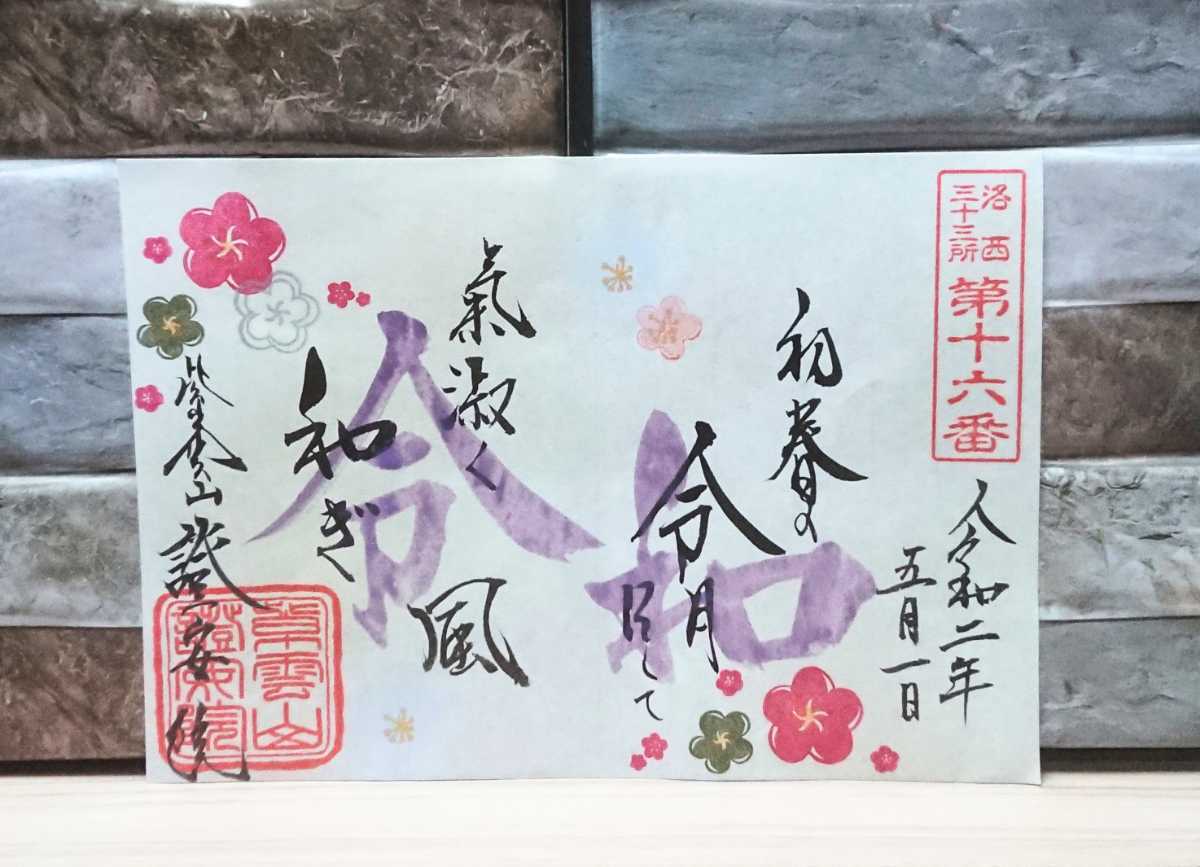 洛西
三十三所
第十六番
令和二年
五月一日
初春の
令月
にして
氣淑く
風
和ぎ
令和
紫雲山 證安院
紫雲山
證安院